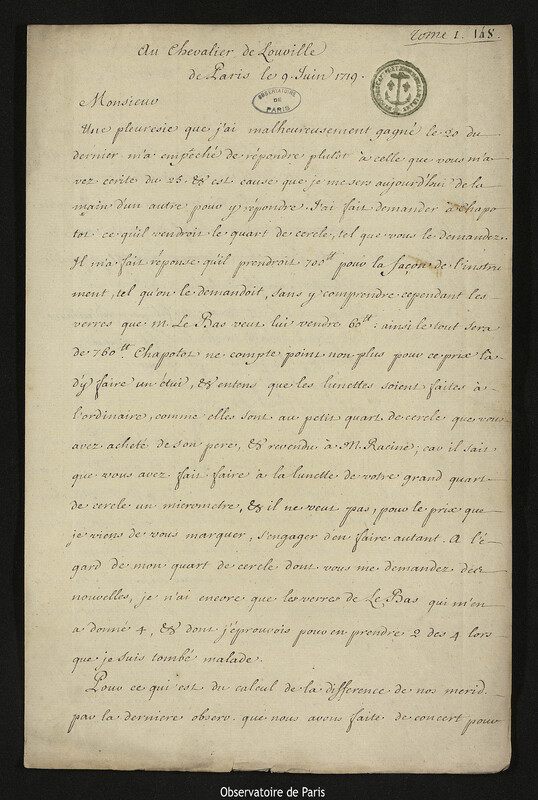 Tome 1. 148.
Au Chevalier de Louville
de Paris le 9. Juin 1719.
OBSERVATOIRE
DE
PARIS
Monsieur
Une pleuresie que j'ai malheureusement gagné le 20 du
dernier m'a empêché de répondre plutôt à celle que vous m'a
vez ecrite du 25. & est cause que je me ser aujourd'hui de la
main d'un autre pour y répondre. J'ai fait demander à Chapo
tot ce qu'il vendroit le quart de cercle, tel que vous le demandez.
Il m'a fait réponse qu'il prendroit 700tt pour la façon de l'instru
ment, tel qu'on le demandoit, sans y comprendre cependant les
verres que m. Le Bas veut lui vendre 60tt: ainsi le tout sera
de 760.tt Chapotot ne compte point non plus pour ce prix là
d'y faire un étui, & entens que les lunettes soient faites à
l'ordinaire, comme elles sont au petit quart de cercle que vous
avez acheté de son pere, & revendu à M. Racine; car il sait
que vous avez fait faire à la lunette de votre grand quart
de cercle un micrometre, & il ne veut pas, pour le prix que
je viens de vous marquer, s'engager d'en faire autant. A l'é
gard de mon quart de cercle dont vous me demandez des
nouvelles, je n'ai encore que les verres de Le Bas qui m'en
a donné 4, & dont j'éprouvois pour en prendre 2 des 4 lors
que je suis tombé malade.
Pour ce qui est du calcul de la difference de nos merid.
par la derniere observ. que nous avons faite de concert pour
Observatoire de Paris